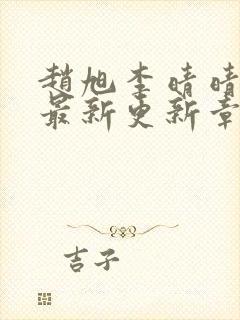 趙旭李晴晴
最新更新章
吉子